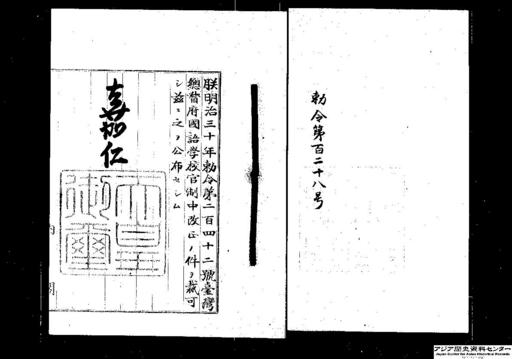 勅令第百二十八号
朕明治三十年勅令第二百四十二號臺灣
總督府國語學校官制中改正ノ件ヲ裁可
シ茲ニ之ヲ公布セシム
嘉仁
天皇
御璽
内閣
アジア歴史資料センター
Japan Center for Asian Historical Records